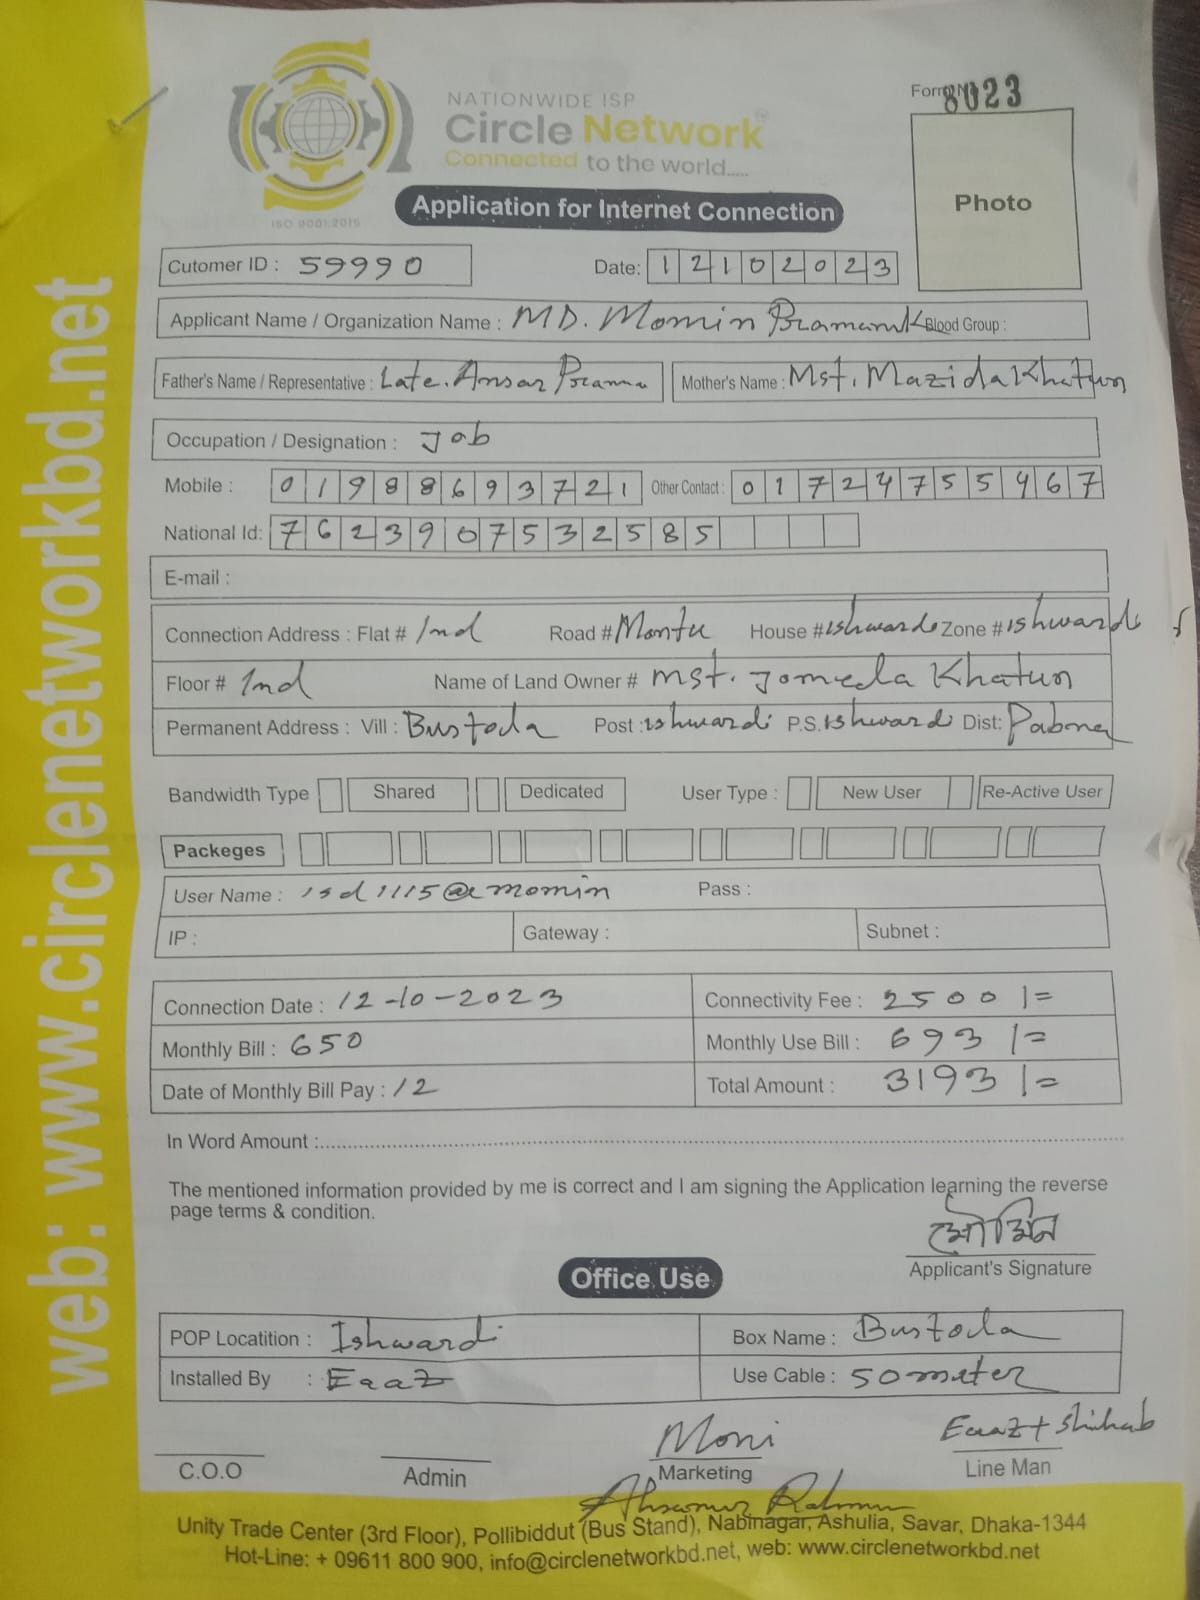 web: www.circlenetworkbd.net
NATIONWIDE ISP
Circle Network®
Connected to the world.....
ISO 9001:2015
Form No 8023
Photo
Application for Internet Connection
Cutomer ID : 59990
Date: 12102023
Applicant Name / Organization Name : MD. Momin Pramanik Blood Group :
Father's Name / Representative : Late. Ansar Prama Mother's Name : Mst. Mazida Khatun
Occupation / Designation : Job
Mobile : 01988693721 Other Contact : 01724755467
National Id: 7623907532585
E-mail :
Connection Address : Flat # 1nd Road # Montu House # ishwardi Zone # ishwardi
Floor # 1nd Name of Land Owner # Mst. Jomeda Khatun
Permanent Address : Vill : Bustoda Post : ishwardi P.S. ishwardi Dist: Pabna
Bandwidth Type Shared Dedicated User Type : New User Re-Active User
Packeges
User Name : isd1115@momin Pass :
IP : Gateway : Subnet :
Connection Date : 12-10-2023 Connectivity Fee : 2500/=
Monthly Bill : 650 Monthly Use Bill : 693/=
Date of Monthly Bill Pay : 12 Total Amount : 3193/=
In Word Amount :
The mentioned information provided by me is correct and I am signing the Application learning the reverse
page terms & condition.
মৌমিন
Applicant's Signature
Office Use
POP Locatition : Ishwardi Box Name : Bustoda
Installed By : Eaaz Use Cable : 50 meter
Moni Eaaz + Shihab
C.O.O Admin Marketing Line Man
Rahman
Unity Trade Center (3rd Floor), Pollibiddut (Bus Stand), Nabinagar, Ashulia, Savar, Dhaka-1344
Hot-Line: + 09611 800 900, info@circlenetworkbd.net, web: www.circlenetworkbd.net